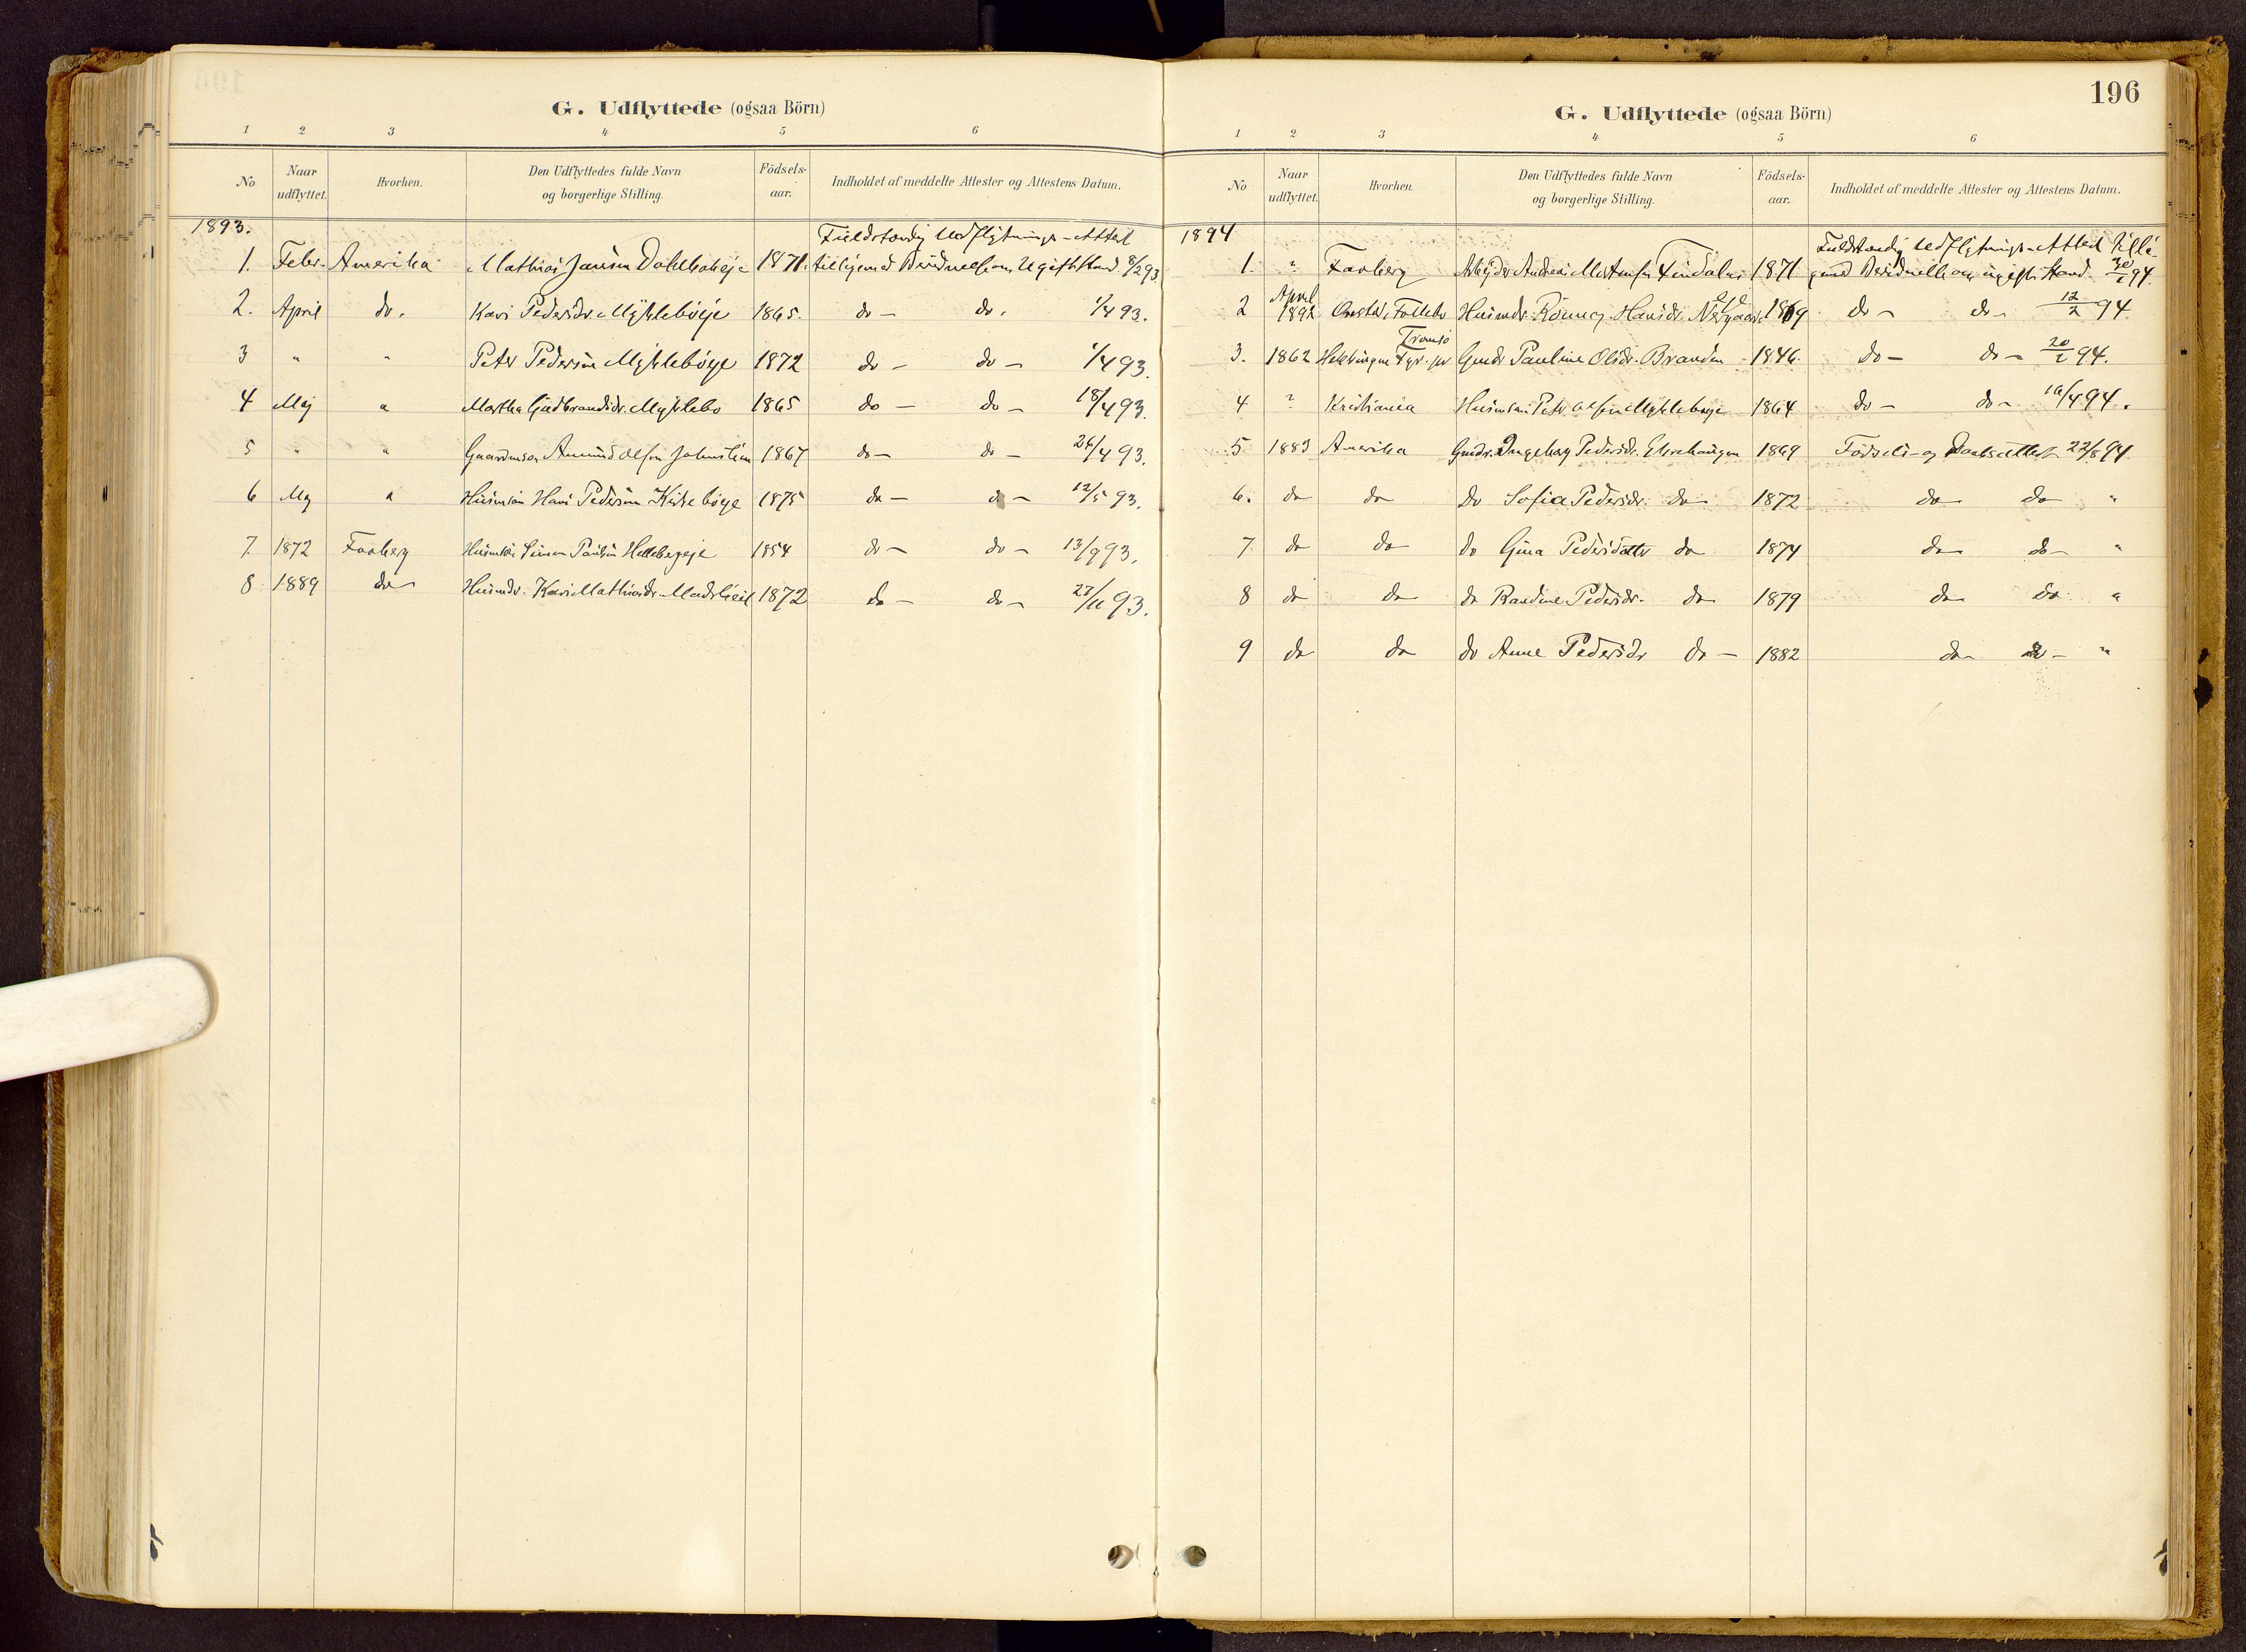 G. Udflyttede (ogsaa Börn)
1 2 3 4 5 6
No Naar udflyttet. Hvorhen. Den Udflyttedes fulde Navn og borgerlige Stilling. Födsels-aar. Indholdet af meddelte Attester og Attestens Datum.
1893.
Fuldstændig Udflytnings-Attest
1. Febr. Amerika Mathias Jansen 1871. tilligemed om Ugift Stand 8/2 93
2. April do. Kari Pedersdr. Myklebøeje 1865. do - do. 1/4 93.
3 " " Peter Pedersen Myklebøeje 1872 do - do - 1/4 93.
4 Maj " Martha Gudbrandsdr. Myklebø 1865 do - do - 18/4 93.
5 " " Gaardmsøn Amund Olsen 1867 do - do - 26/4 93.
6 Maj " Husmsøn Hans Pedersen 1875 do - do - 12/5 93.
7. 1872 Faaberg Husmsøn Simen Paulsen 1854 do - do - 13/9 93.
8 1889 do Husmdr. Kari Mathiasdr. 1872 do - do - 27/11 93.
196
G. Udflyttede (ogsaa Börn)
1 2 3 4 5 6
No Naar udflyttet. Hvorhen. Den Udflyttedes fulde Navn og borgerlige Stilling. Födsels-aar. Indholdet af meddelte Attester og Attestens Datum.
1894
Fuldstændig Udflytnings-Attest tilli-
1. ? Faaberg Arbejder Andreas Mortensen Findalen 1871 gemed om ugift Stand 30/1 94.
2 April 1892 Follebo Husmdr. Rönnaug Hansdr. 1869 do - do - 12/2 94
3. 1862 Tromsö Gmdr. Pauline Olsdr. Branden 1846. do - do - 20/2 94.
4 ? Kristiania Husmsøn Peter Olsen Myklebøeje 1864 do - do - 10/4 94.
5 1883 Amerika Gmdr. Ingeborg Pedersdr. 1869 Födsels- og Daabsattest 22/8 94
6. do do do Sofia Pedersdr. do 1872 do do "
7 do do do Gina Pedersdatter do 1874 do do - "
8 do do do Randine Pedersdr. do 1879 do do "
9 do do do Anne Pedersdr do - 1882 do do - "